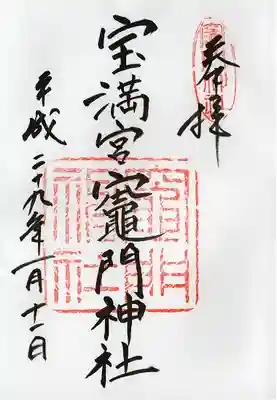 奉拝
宝満宮竈門神社
平成二十九年一月十一日